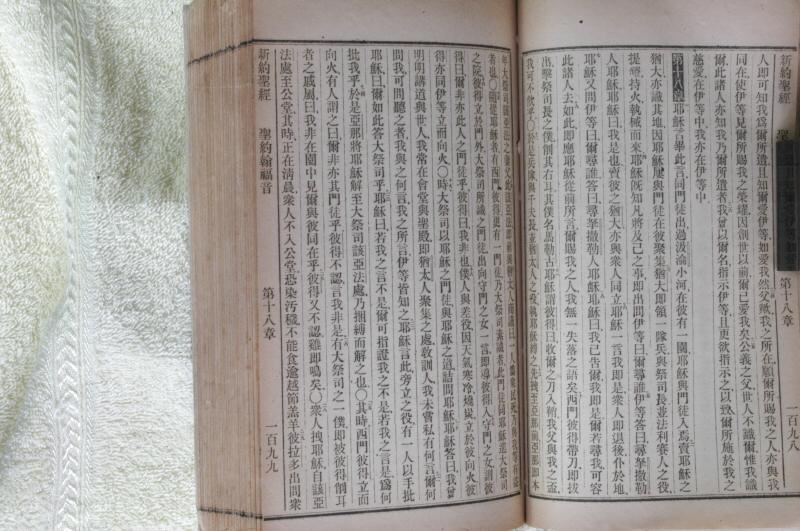 新約聖經
聖
一百九八
人即可知我爲爾所遣且知爾愛伊等如愛我然父歟我之所在願爾所賜我之人亦與我
同在使伊等見爾所賜我之榮耀因創世以前爾已愛我矣公義之父世人不識爾惟我識
爾此諸人亦知我乃爾所遣者我曾以爾名指示伊等且更欲指示之以致爾所施於我之
慈愛在伊等中我亦在伊等中
第十八章耶穌言畢此言同門徒出過汲淪小河在彼有一園耶穌與門徒入焉賣耶穌之
猶大亦識其地因耶穌屢與門徒在彼聚集猶大即領一隊兵與祭司長並法利賽人之役
提燈持火執械而來耶穌既知凡將及己之事即出問伊等曰爾尋誰伊等答曰尋拏撒勒
人耶穌耶穌曰我是也賣彼之猶大亦與衆人同立耶穌一言我即是衆人即退後仆於地
耶穌又問伊等曰爾尋誰答曰尋拏撒勒人耶穌耶穌曰我已告爾我即是爾若尋我可容
此諸人去如此即應耶穌從前所言爾賜我之人我無一失落之語矣西門彼得帶刀即拔
出擊祭司長之僕削其右耳其僕名馬勒古耶穌謂彼得曰收爾之刀入鞘我父與我之盃
我可不飲乎
者也○隨耶穌者有西門彼得更有一門徒乃大祭司素識者此門徒同耶穌進大祭司
之院彼得立於門外大祭司所識之門徒出向守門之女一言即導彼得入守門之女謂彼
得曰爾非亦此人之門徒乎彼得曰我非也僕人與差役因天氣寒冷燒炭立於彼向火彼
得亦同伊等立而向火○時大祭司以耶穌之門徒與耶穌之道詰問耶穌耶穌答曰我曾
明明講道與世人我常在會堂與聖殿即猶太人聚集之處敎訓人我未嘗私有何言爾何
問我可問聽之者我與之何言我之所言伊等皆知之耶穌言此旁立之役有一人以手批
耶穌曰爾如此答大祭司乎耶穌曰若我之言不是爾可指證我之不是若我之言是爲何
批我乎於是亞那將耶穌解至大祭司該亞法處乃捆縛而解之也○其時西門彼得立而
向火有人謂之曰爾非亦其門徒乎彼得不認言我非是有大祭司之一僕即被彼得削耳
者之戚屬曰我非在園中見爾與彼同在乎彼得又不認雞即鳴矣○衆人拽耶穌自該亞
法處至公堂其時正在清晨衆人不入公堂恐染汚穢不能食逾越節羔羊彼拉多出問衆
新約聖經
聖約翰福音
第十八章
一百九九